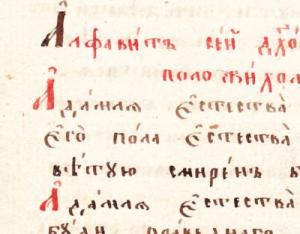 Алфавитъ сей дꙋхо
положих ол
Адамлѧ естества
его пола естества
ветую смирен б
Адамлѧ естества